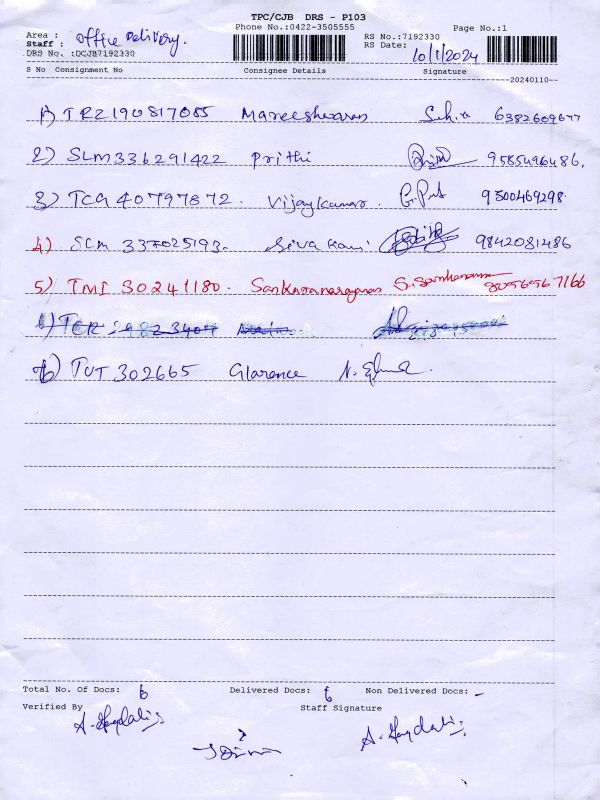 TPC/CJB DRS - P103
Phone No.:0422-3505555 Page No.:1
Area : Office Delivery. RS No.:7192330
Staff : RS Date: 10/1/2024
DRS No. :DCJB7192330
S No Consignment No Consignee Details Signature
20240110
1) TRZ190817055 Mareeshwaran 6382609677
2) SLM336291422 Prithi 9585496486.
3) TCG40797872. Vijaykumar. 9500469298
4) SLM 337025193. Siva Rani 9842081486
5) TMI 30241180. Sankaranarayanan S. Sankaranara 8056967166
6) TUT 302665 Clarence
Total No. Of Docs: 6 Delivered Docs: 6 Non Delivered Docs: -
Verified By Staff Signature